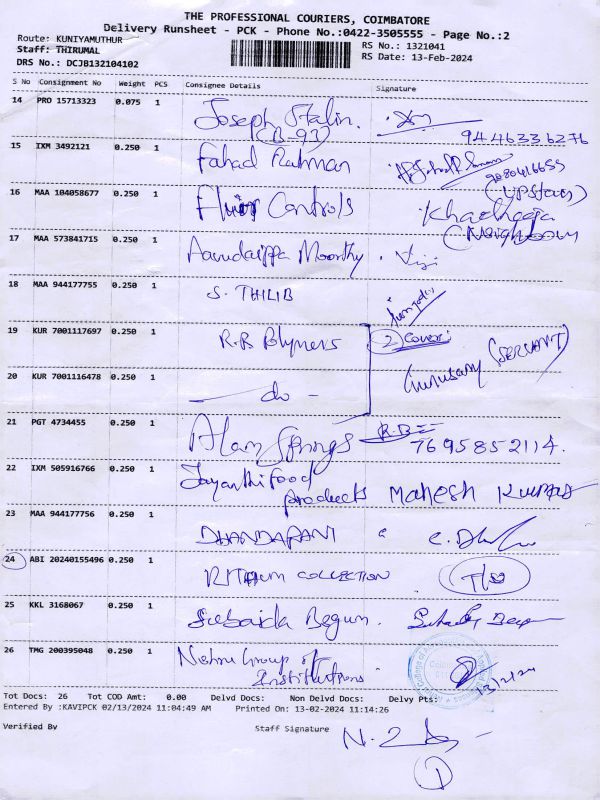 THE PROFESSIONAL COURIERS, COIMBATORE
Delivery Runsheet - PCK - Phone No.:0422-3505555 - Page No.:2
Route: KUNIYAMUTHUR
Staff: THIRUMAL
RS No.: 1321041
DRS No.: DCJB132104102
RS Date: 13-Feb-2024
S No Consignment No Weight PCS Consignee Details Signature
14 PRO 15713323 0.075 1 Joseph Stalin.
(CB-93) 9446336276
15 IXM 3492121 0.250 1 Fahad Rahman
9080416655
(UPStairs)
16 MAA 104058677 0.250 1 Fluir Controls
17 MAA 573841715 0.250 1 Moorthy. Viji
18 MAA 944177755 0.250 1 S. THILIB
19 KUR 7001117697 0.250 1 R.B Blymers (2) Cover:
(SERVANT)
20 KUR 7001116478 0.250 1 — do —
21 PGT 4734455 0.250 1 Alam Springs
7695852114.
22 IXM 505916766 0.250 1 Jayanthi Food
Products Mahesh Kumar
23 MAA 944177756 0.250 1 DHANDAPANI
24 ABI 20240155496 0.250 1 RITHUM COLLECTION
25 KKL 3168067 0.250 1 Subaida Begum.
26 TMG 200395048 0.250 1 Nehru Group of
Institutions 13/2/24
Tot Docs: 26 Tot COD Amt: 0.00 Delvd Docs: Non Delvd Docs: Delvy Pts:
Entered By :KAVIPCK 02/13/2024 11:04:49 AM Printed On: 13-02-2024 11:14:26
Verified By Staff Signature
1